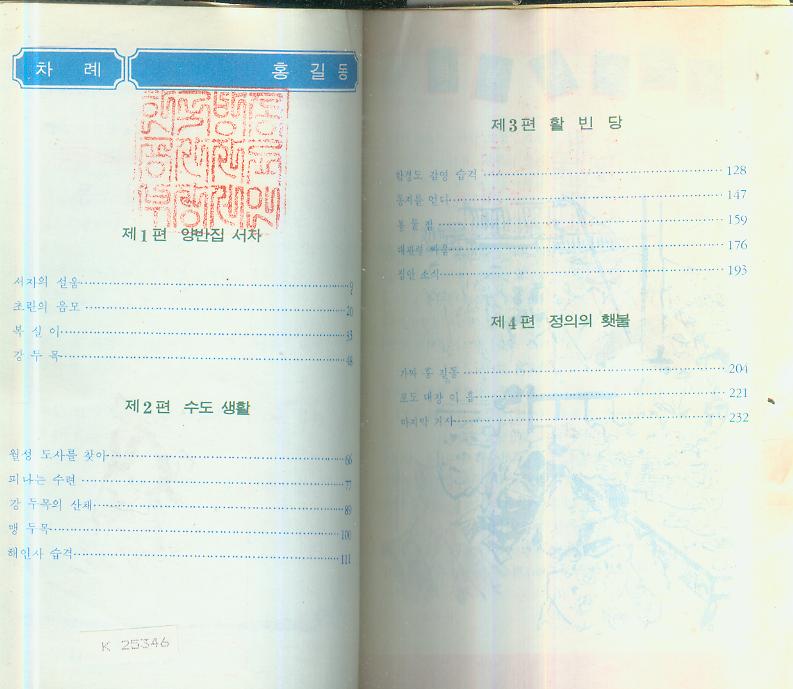 차 례
홍 길 동
제1편 양반집 서자
서자의 설움 9
초란의 음모 20
복 실 이 33
강 두 목 48
제2편 수도 생활
월성 도사를 찾아 66
피나는 수련 77
강 두목의 산채 89
맹 두목 100
해인사 습격 111
K 25346
제3편 활 빈 당
함경도 감영 습격 128
동지를 얻다 147
봉 물 짐 159
대관령 싸움 176
집안 소식 193
제4편 정의의 횃불
가짜 홍 길동 204
포도 대장 이 흡 221
마지막 거사 232